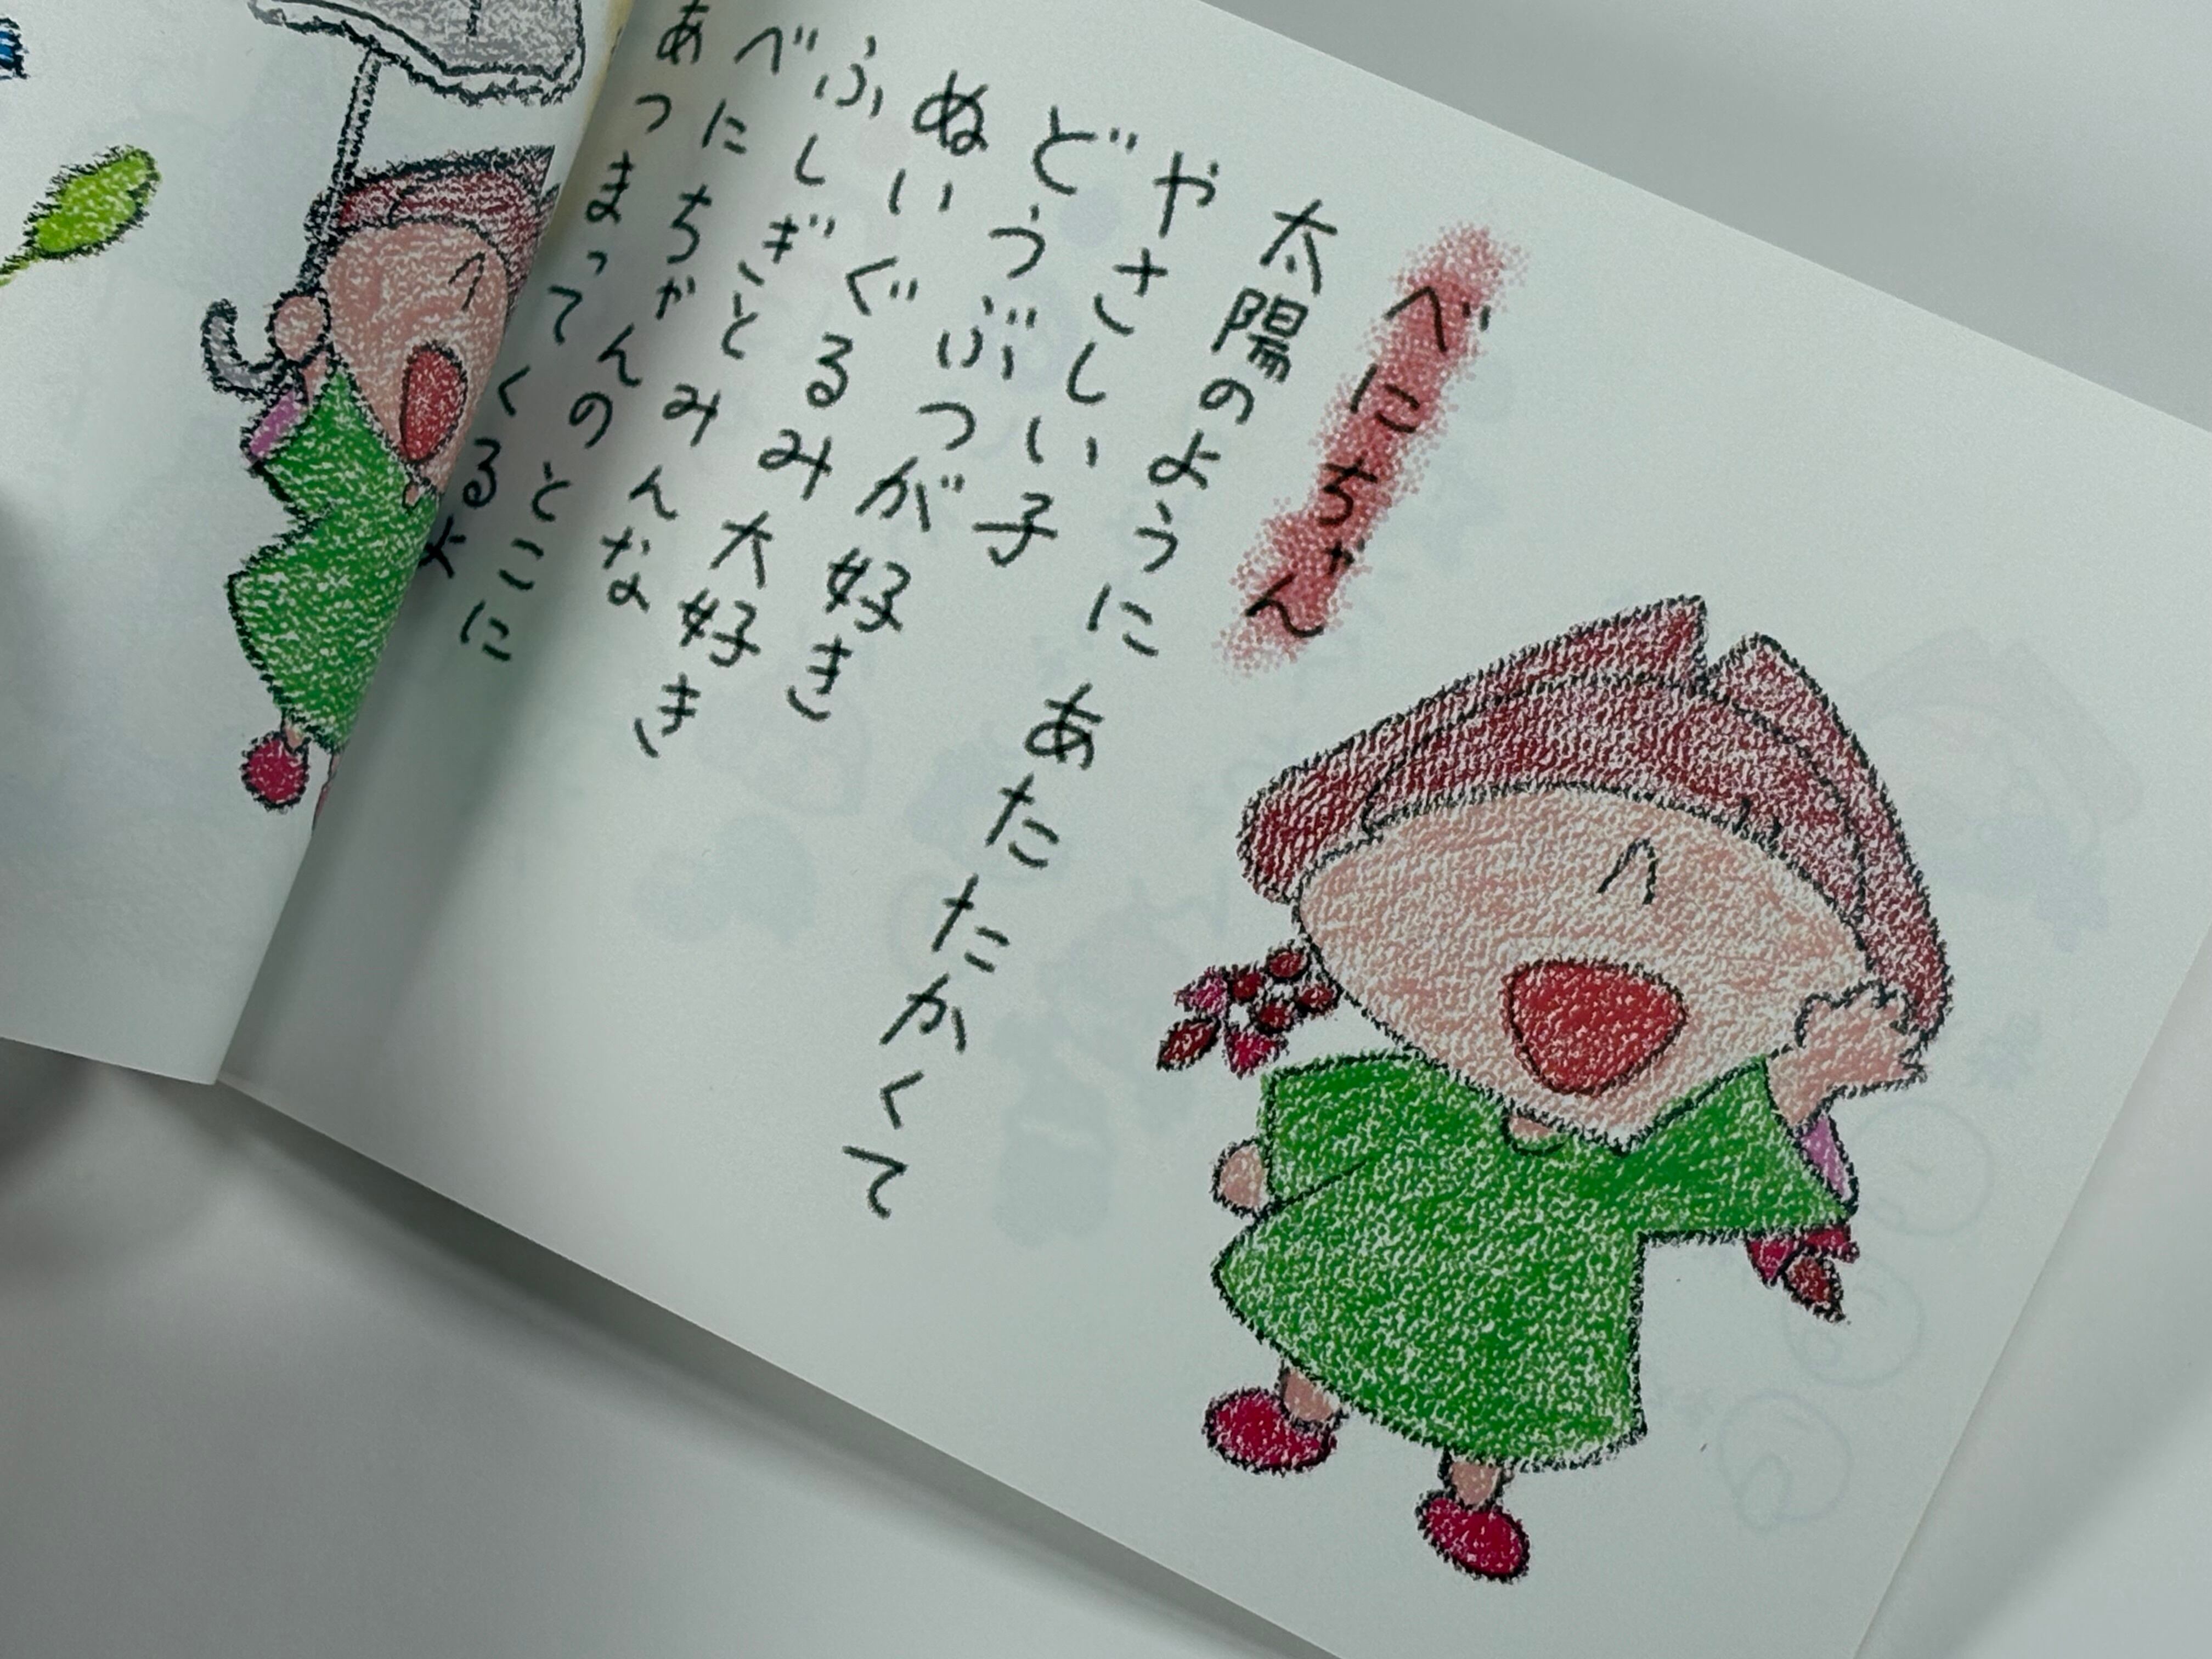 べにちゃん
太陽のように あたたかくて
やさしい子
どうぶつが好き
ぬいぐるみ 大好き
ふしぎとみんな
べにちゃんのとこに
あつまってくるよ